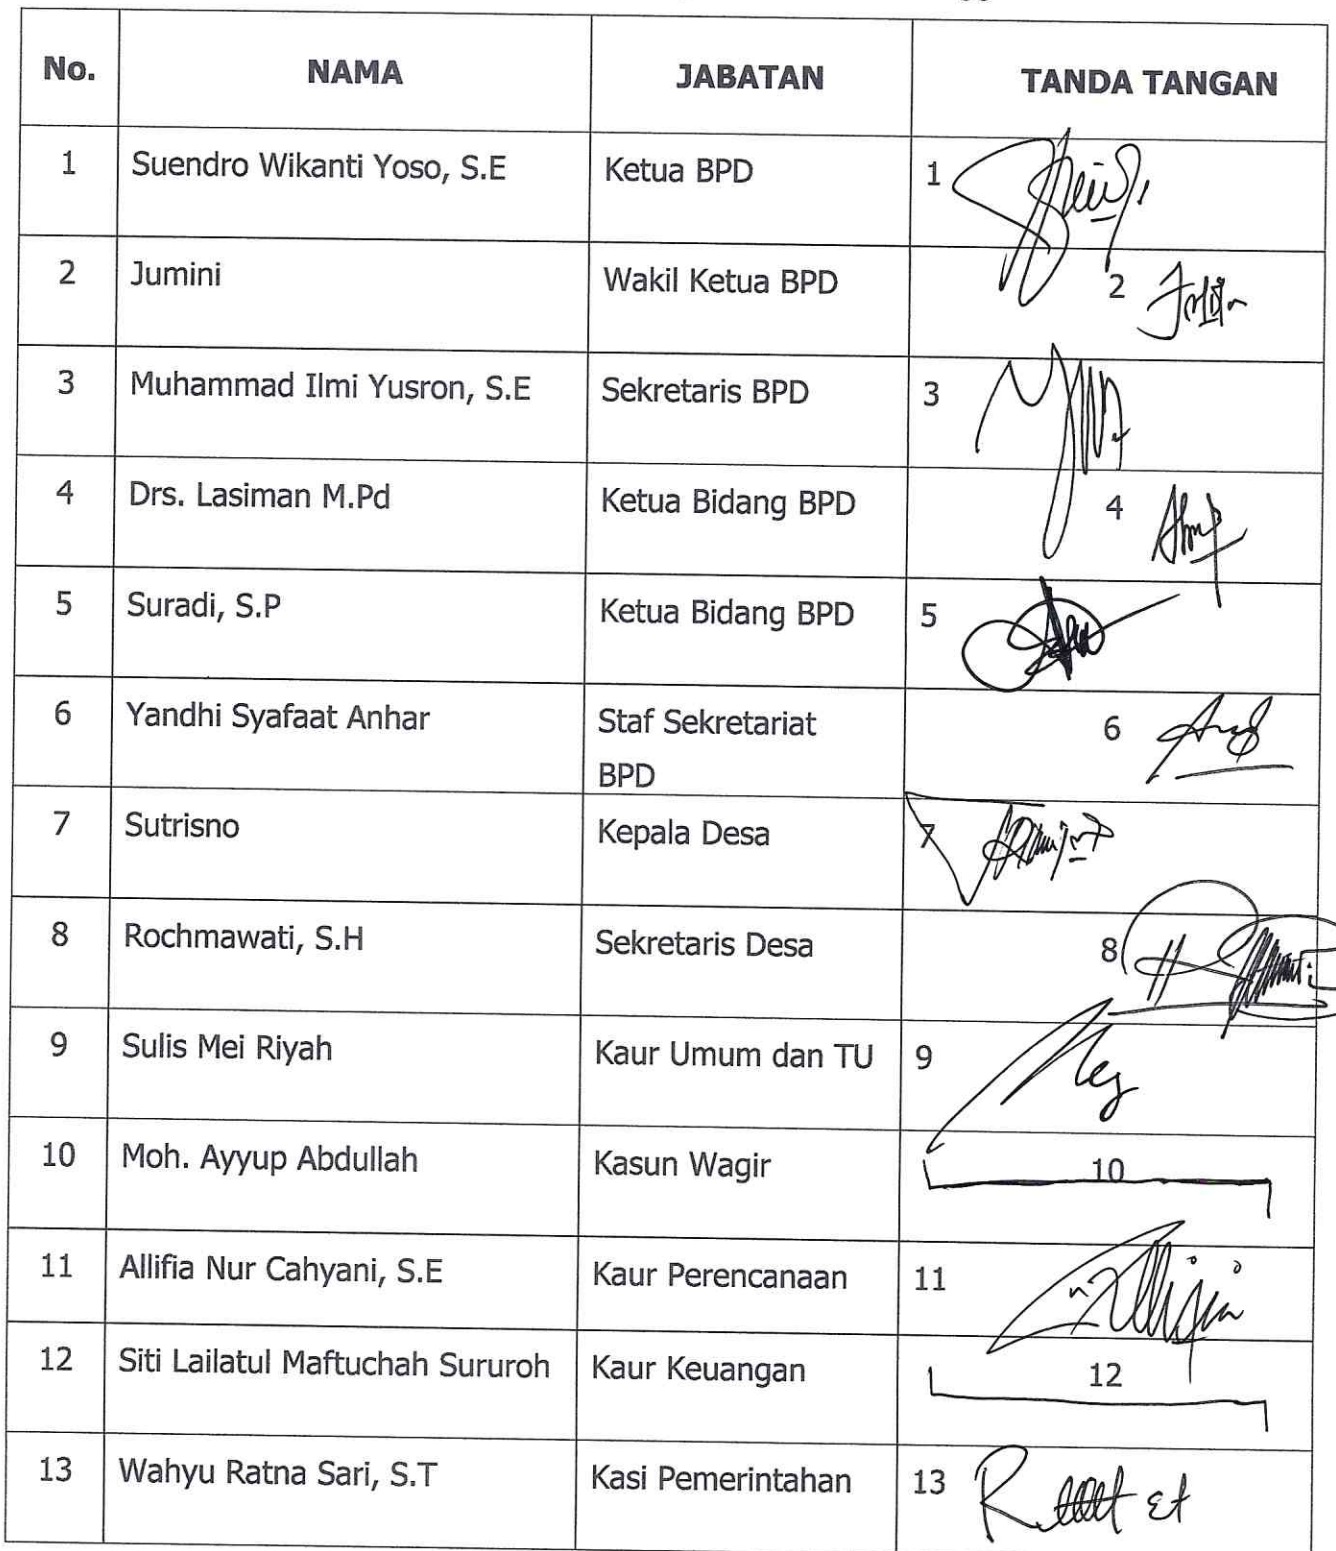 No. NAMA JABATAN TANDA TANGAN
1 Suendro Wikanti Yoso, S.E Ketua BPD 1
2 Jumini Wakil Ketua BPD 2
3 Muhammad Ilmi Yusron, S.E Sekretaris BPD 3
4 Drs. Lasiman M.Pd Ketua Bidang BPD 4
5 Suradi, S.P Ketua Bidang BPD 5
6 Yandhi Syafaat Anhar Staf Sekretariat 6
BPD
7 Sutrisno Kepala Desa 7
8 Rochmawati, S.H Sekretaris Desa 8
9 Sulis Mei Riyah Kaur Umum dan TU 9
10 Moh. Ayyup Abdullah Kasun Wagir 10
11 Allifia Nur Cahyani, S.E Kaur Perencanaan 11
12 Siti Lailatul Maftuchah Sururoh Kaur Keuangan 12
13 Wahyu Ratna Sari, S.T Kasi Pemerintahan 13